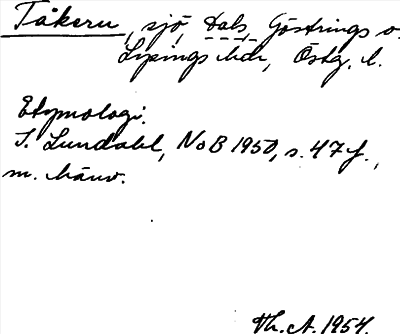 Tåkern, sjö, Dals, Göstrings o.
Lysings hdr, Östg. l.
Etymologi.
I. Lundahl, NoB 1950, s. 47 f.,
m. hänv.
Th. A. 1954.